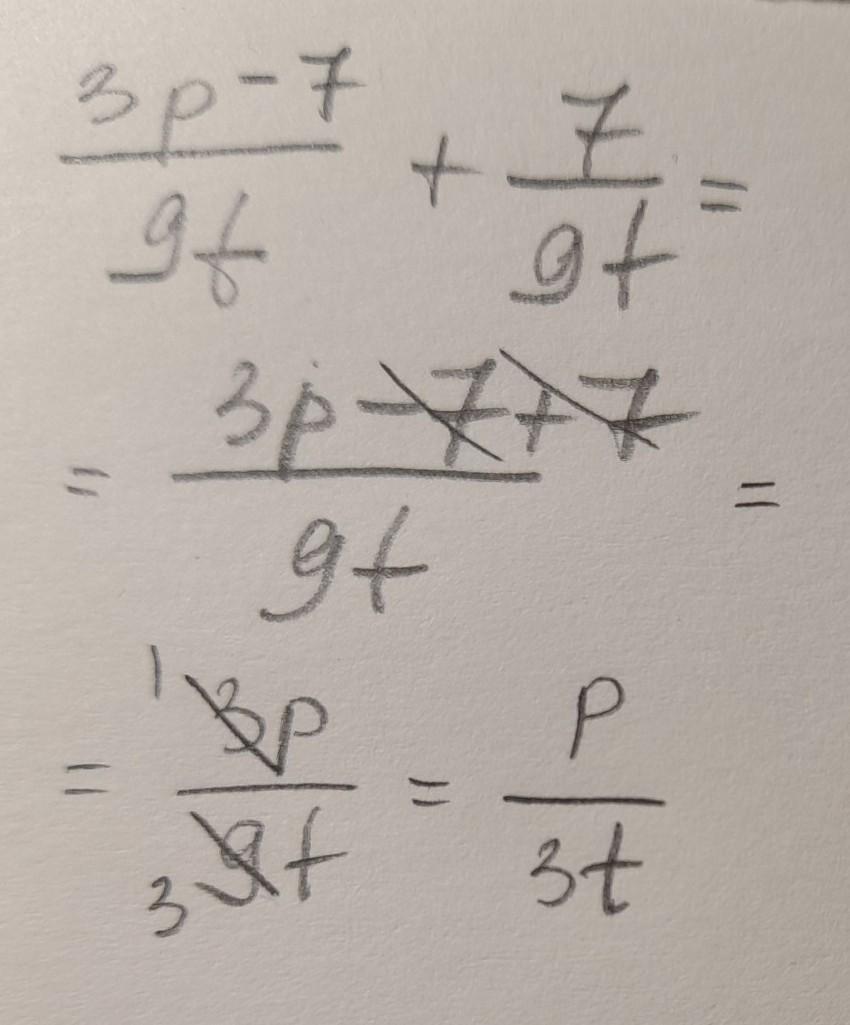 3p-7/9t + 7/9t =
= 3p-7+7/9t =
= 1 3p/3 9t = p/3t